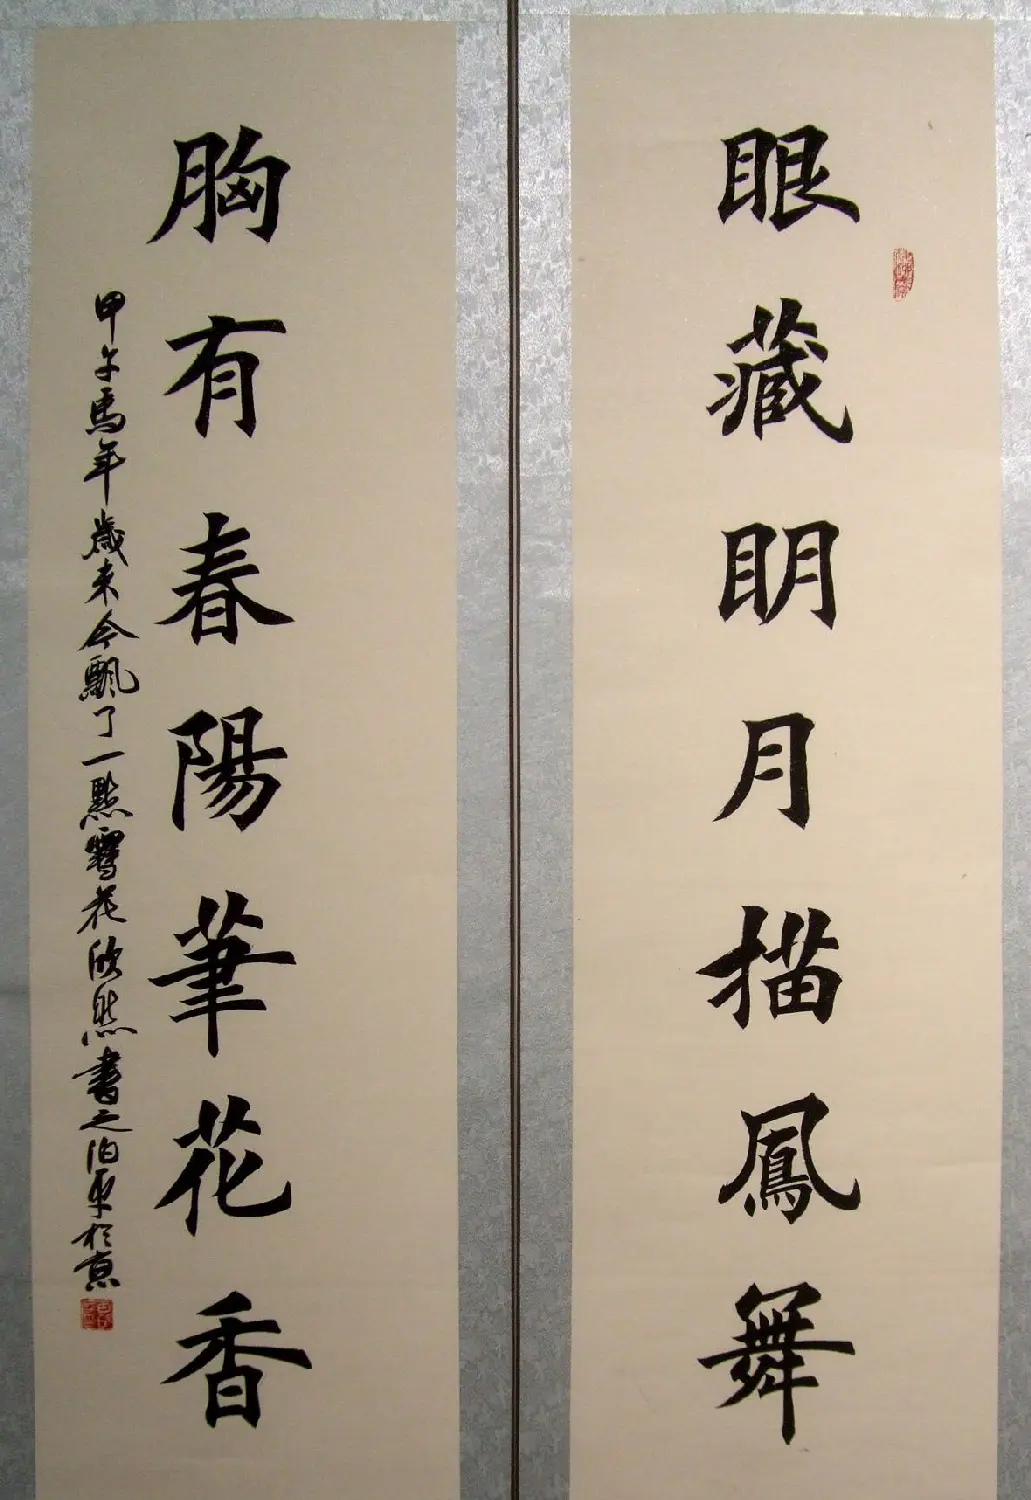 眼藏明月描鳳舞
胸有春陽筆花香
甲午馬年歲末今飄了一點雪花欣然書之泊東於京